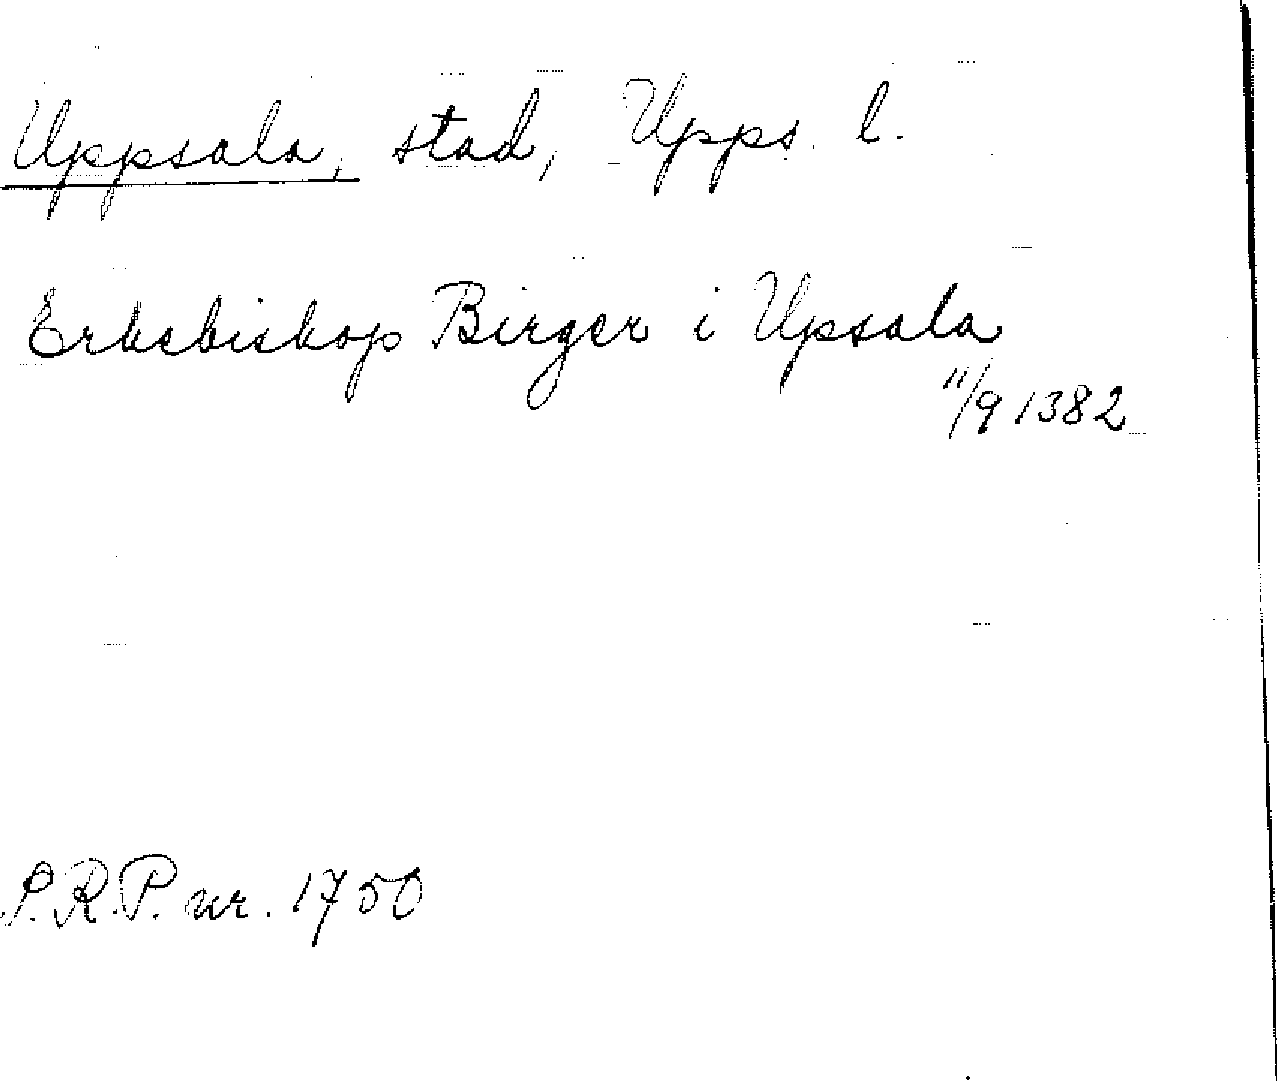 Uppsala, stad, Upps. l.
Erkebiskop Birger i Upsala
11/9 1382
S.R.P. nr. 1750